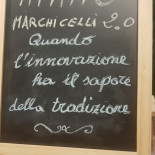 MARCHICELLI 2.0
Quando
l'innovazione
ha il sapore
della tradizione